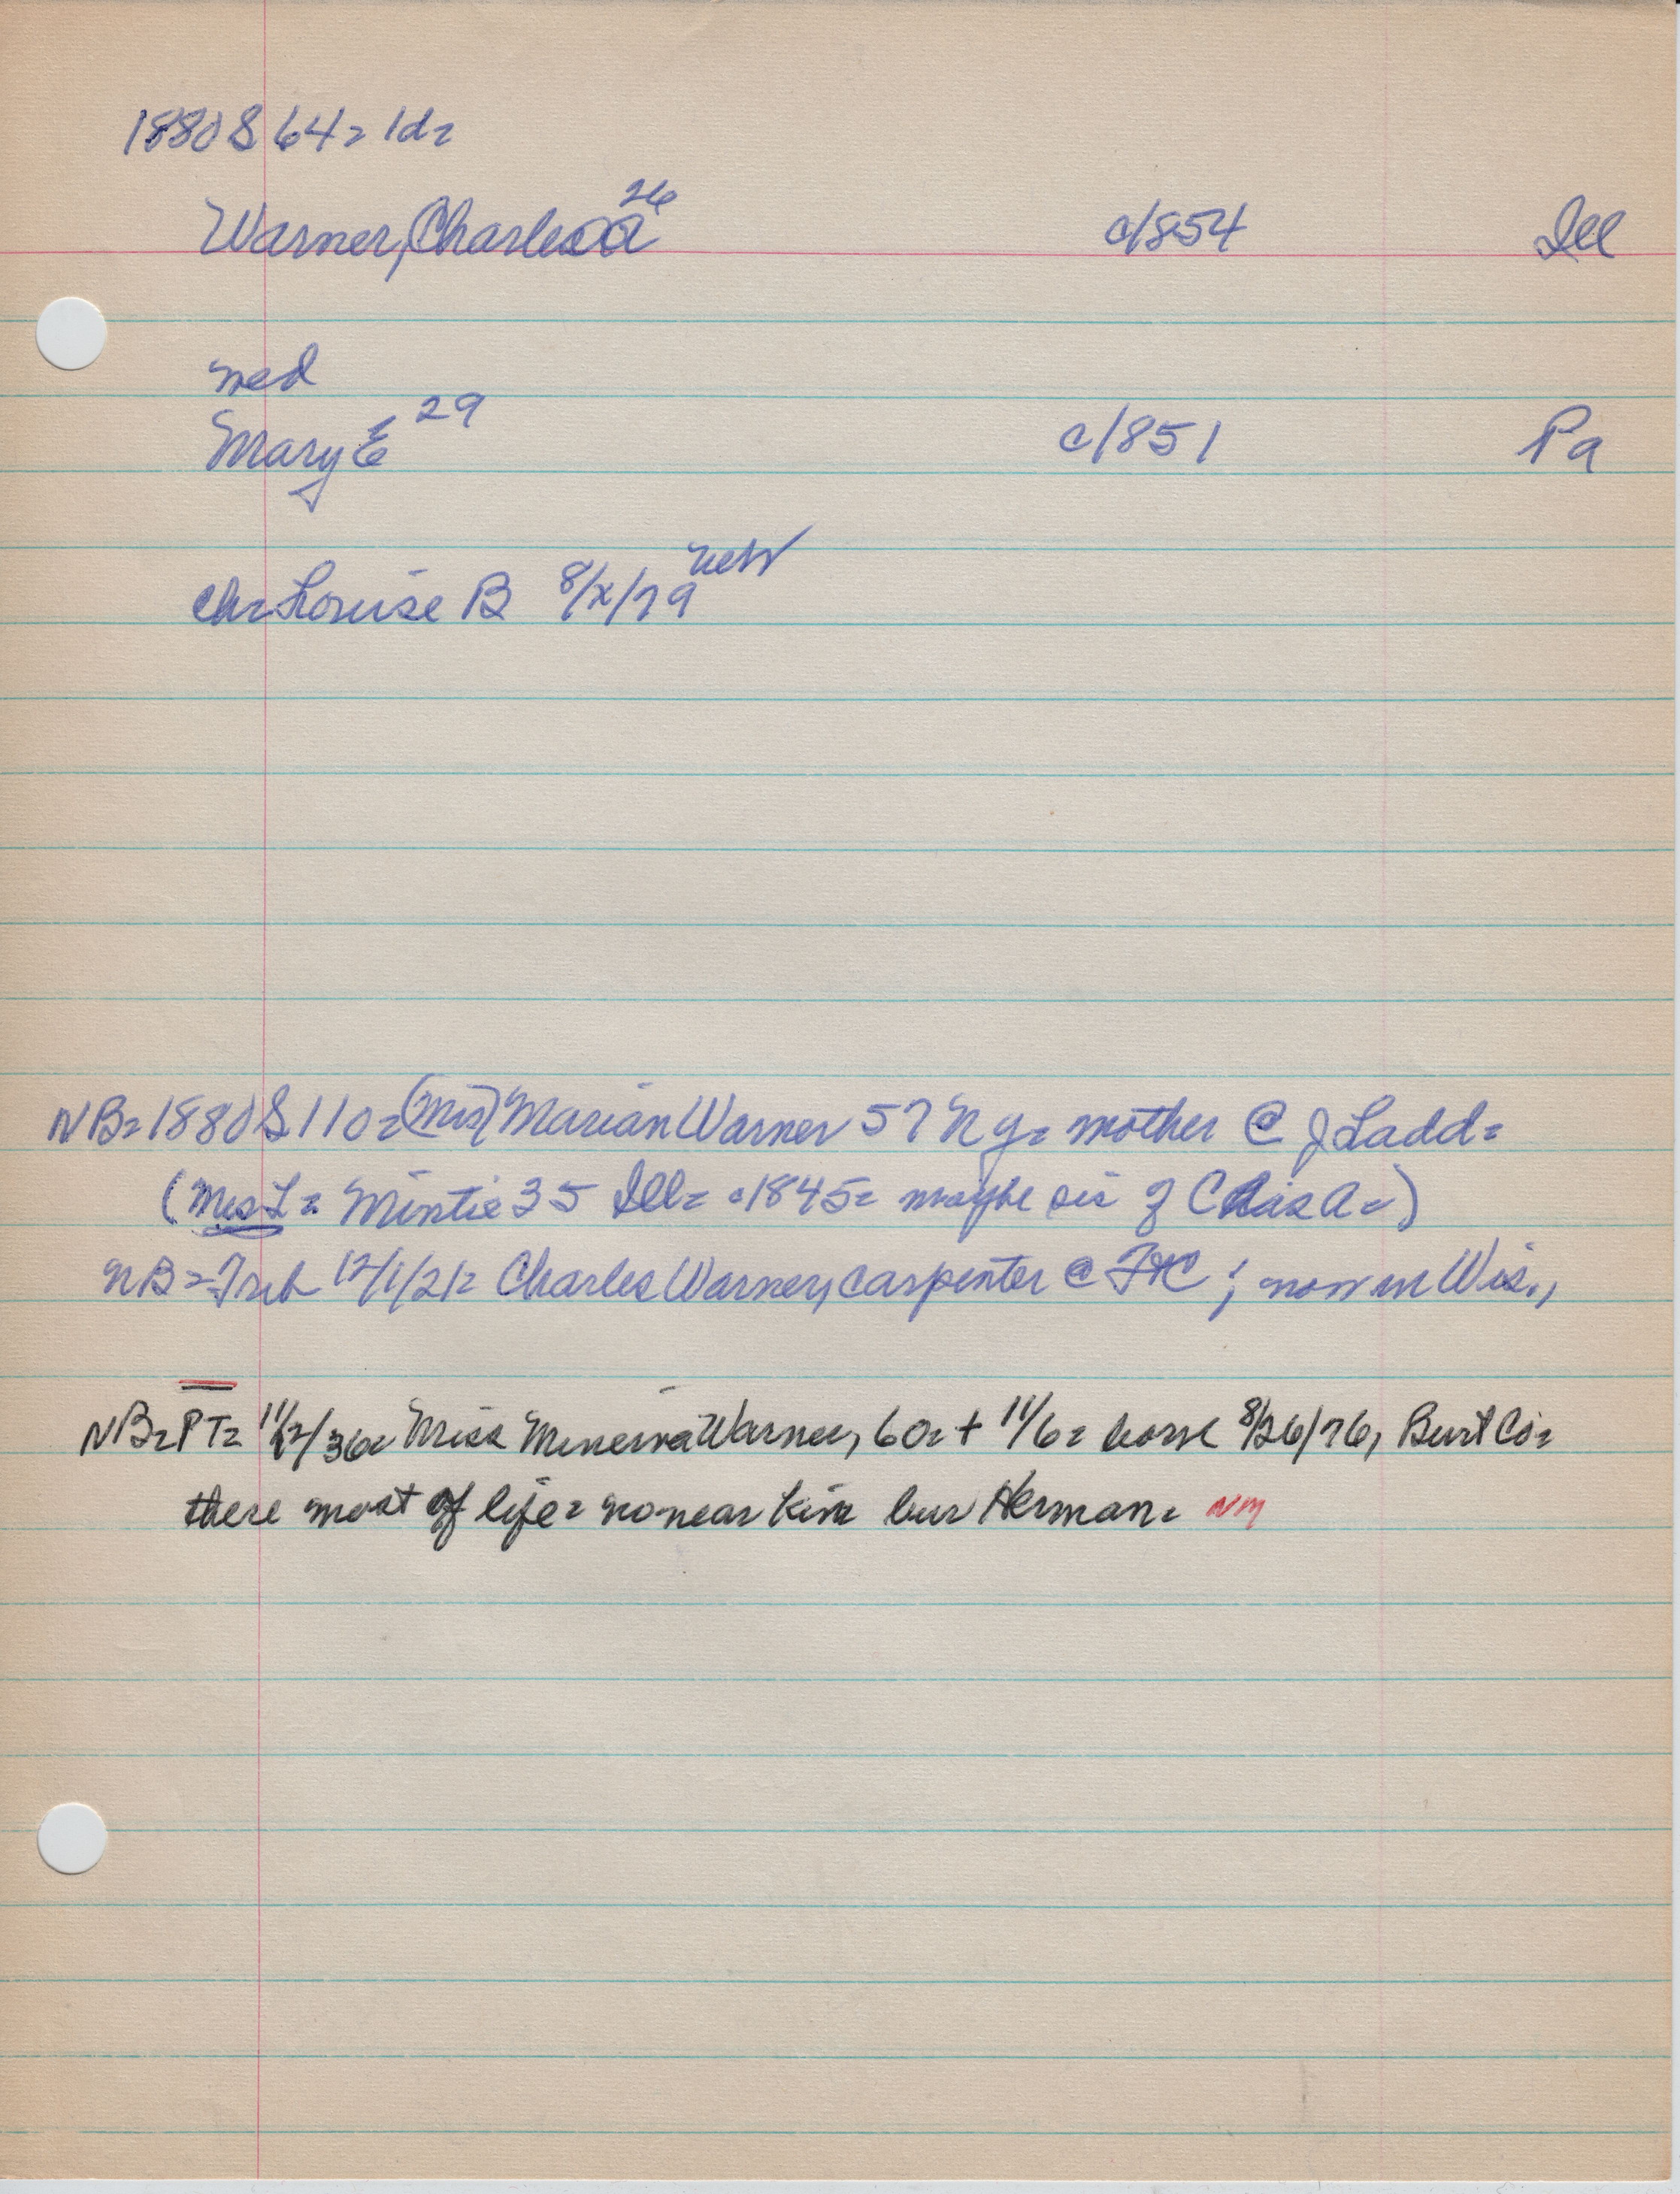 1880 S 64= 1d=
26
Warner, Charles A c1854 Ill
med
Mary E 29 c1851 Pa
Neb
ch= Louise B 8/x/79
NB= 1880 S 110= (Mrs) Marian Warner 57 NY= mother @ J Ladd=
(Mrs L= Mintie 35 Ill= c1845= maybe sis of Chas A=)
NB= Trib 12/1/21= Charles Warner, carpenter @ FtC; now in Wis.,
NB= PT= 11/12/36= Miss Minerva Warner, 60= + 11/6= born 8/26/76, Burt Co=
there most of life= no near kin bur Herman= NM